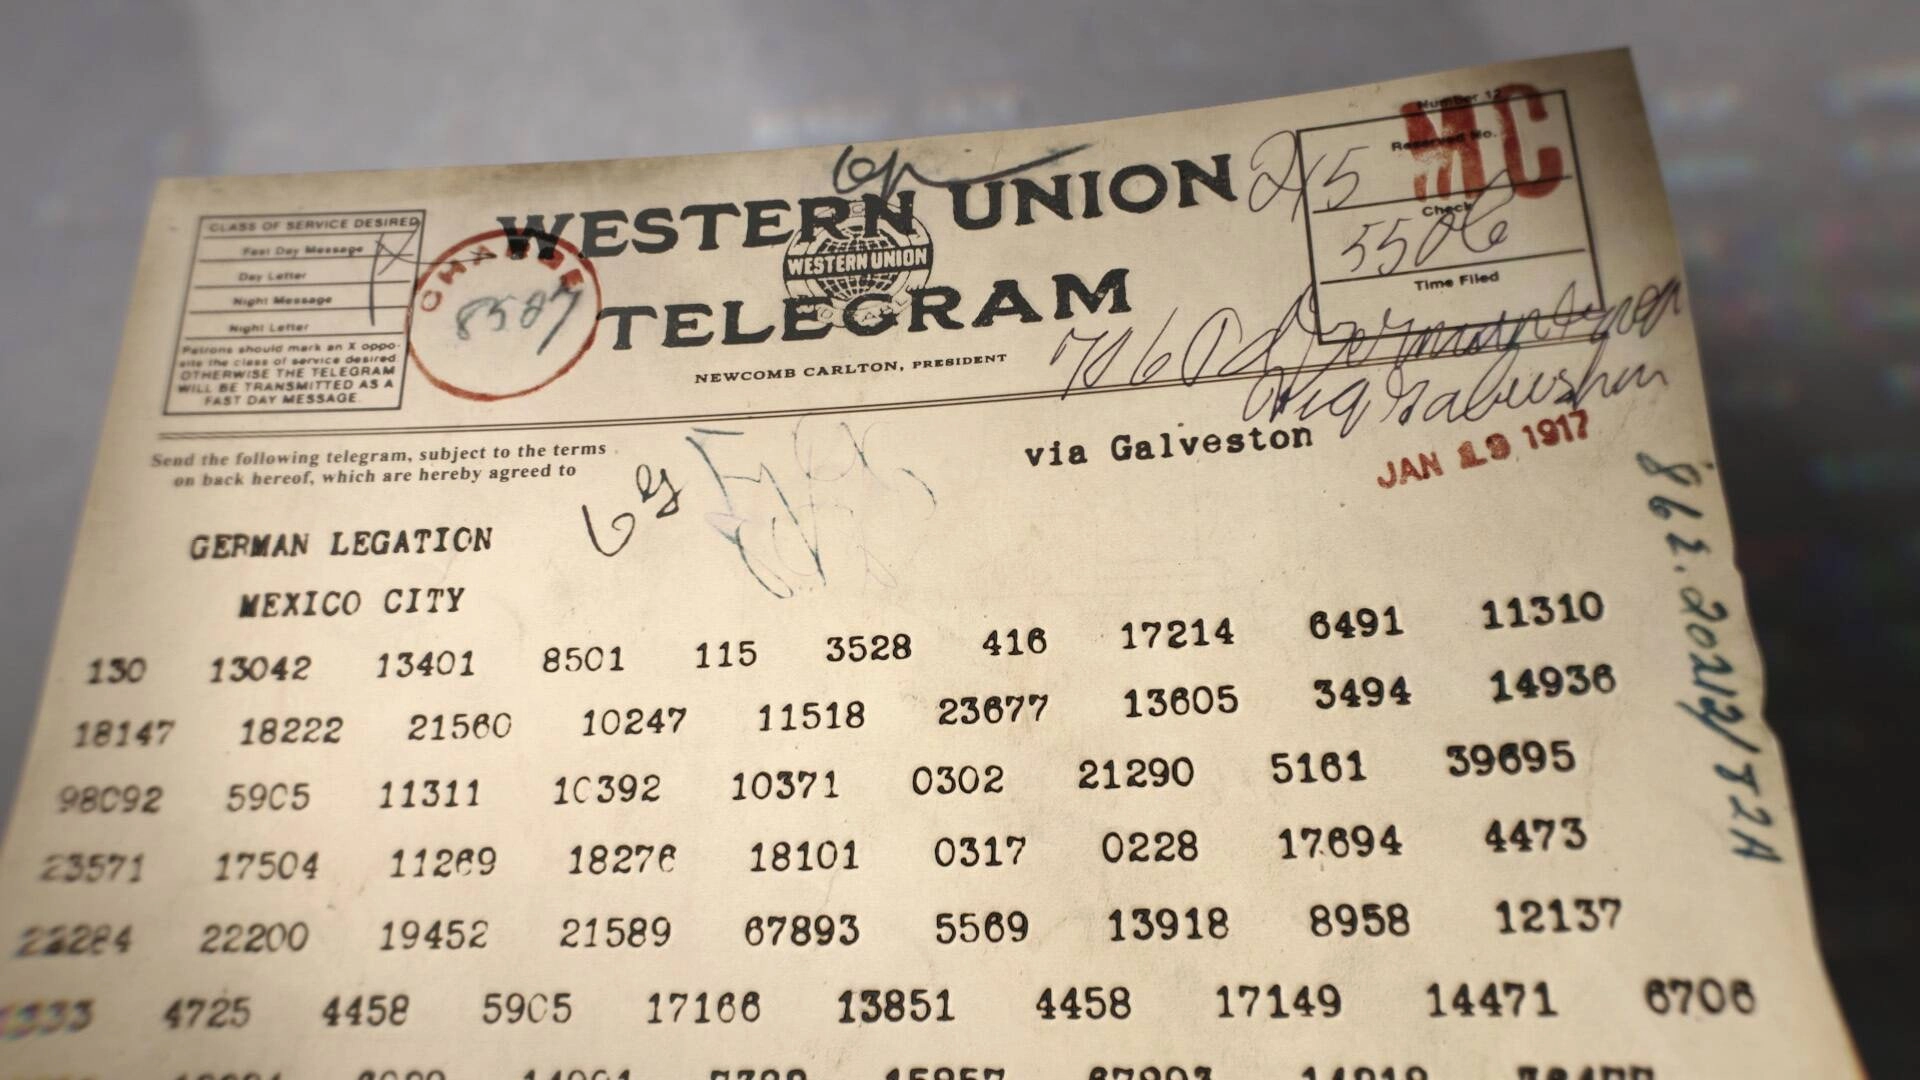 Number 12
MC
Reserved No.
215
Check
5506
Time Filed
CLASS OF SERVICE DESIRED
Fast Day Message
X
Day Letter
Night Message
Night Letter
Patrons should mark an X oppo-
site the class of service desired
OTHERWISE THE TELEGRAM
WILL BE TRANSMITTED AS A
FAST DAY MESSAGE.
CHARGE
WESTERN UNION
WESTERN UNION
TELEGRAM
NEWCOMB CARLTON, PRESIDENT
Send the following telegram, subject to the terms
on back hereof, which are hereby agreed to
via Galveston
JAN 19 1917
GERMAN LEGATION
MEXICO CITY
130 13042 13401 8501 115 3528 416 17214 6491 11310
18147 18222 21560 10247 11518 23677 13605 3494 14936
98092 5905 11311 10392 10371 0302 21290 5161 39695
23571 17504 11269 18276 18101 0317 0228 17694 4473
22284 22200 19452 21589 67893 5569 13918 8958 12137
1333 4725 4458 5905 17166 13851 4458 17149 14471 6706